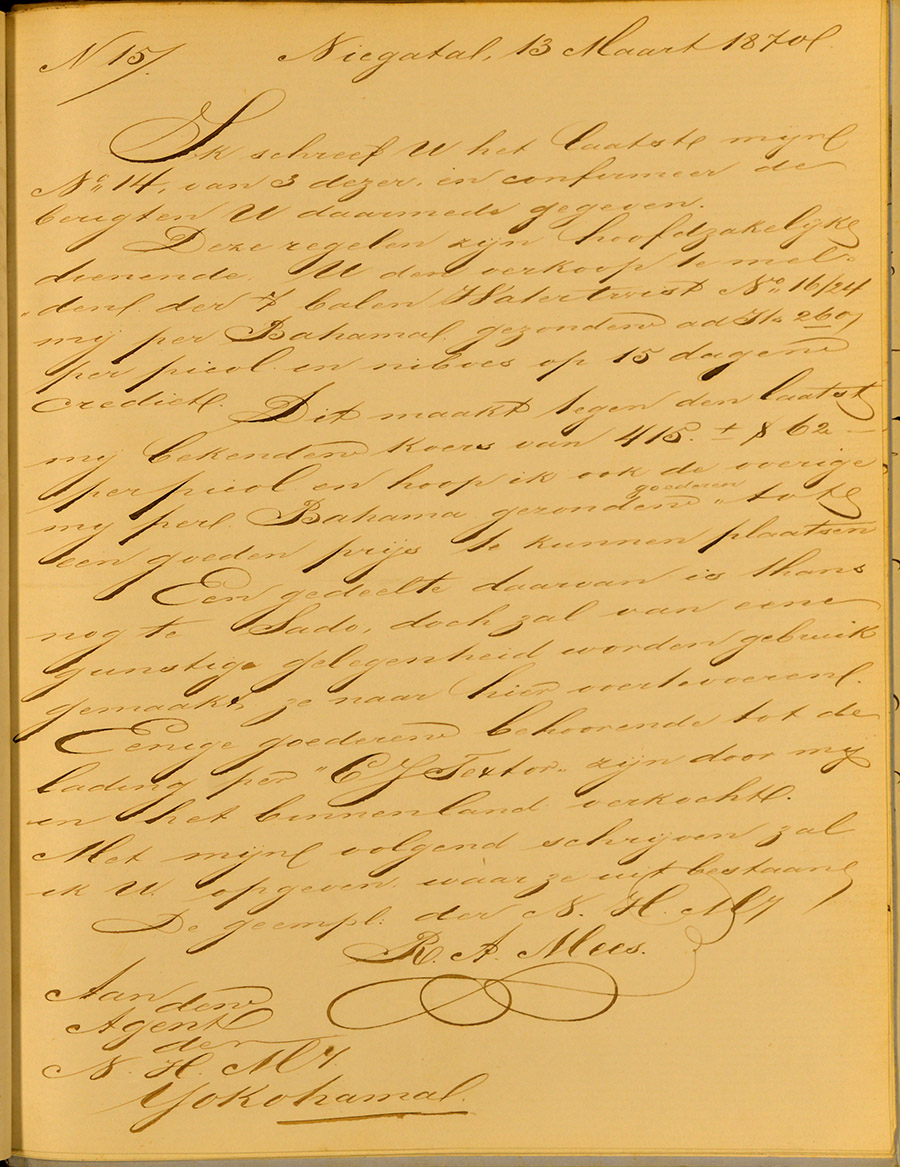 N 15/.
Niegata, 13 Maart 1870.
Ik schreef U het laatst mijne
No 14, van 3 dezer, en confirmeer de
berigten U daarmede gegeven.
Deze regelen zijn hoofdzakelijk
dienende U den verkoop te mel-
"den der 7 balen Watertwist No 16/24
mij per Bahama gezonden ad 260,
per picol in niboes op 15 dagen
crediet. Dit maakt tegen den laatst
mij bekenden koers van 415. ± $ 62 —
per picol en hoop ik ook de overige
mij per Bahama gezonden goederen tot
een goeden prijs te kunnen plaatsen
Een gedeelte daarvan is thans
nog te Sado, doch zal van eene
gunstige gelegenheid worden gebruik
gemaakt, ze naar hier over te voeren.
Eenige goederen behoorende tot de
lading per "C J Textor" zijn door mij
in het binnenland verkocht.
Met mijn volgend schrijven zal
ik U opgeven waar ze uit bestaan,
De geempl: der N. H. My
R. A. Mees.
Aan
den
Agent
der
N. H. My.
Yokohama.